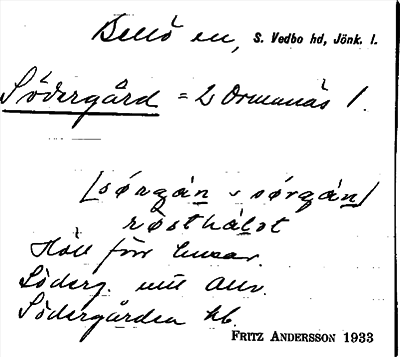 Bellö sn, S. Vedbo hd, Jönk. l.
Södergård = 2 Ormanäs 1.
[sørgán ‐ sørgán]
rösthålst
Höll förr husar.
Söderg. nu anv.
Södergården kb.
FRITZ ANDERSSON 1933